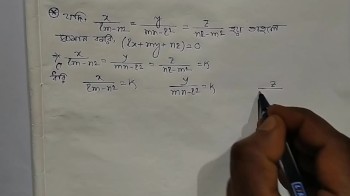 যদি, x/lm-n2 = y/mn-l2 = z/nl-m2 হয় তাহলে
প্রমাণ করো, (lx+my+nz)=0
x/lm-n2 = y/mn-l2 = z/nl-m2 = K
x/lm-n2 = K, y/mn-l2 = K z